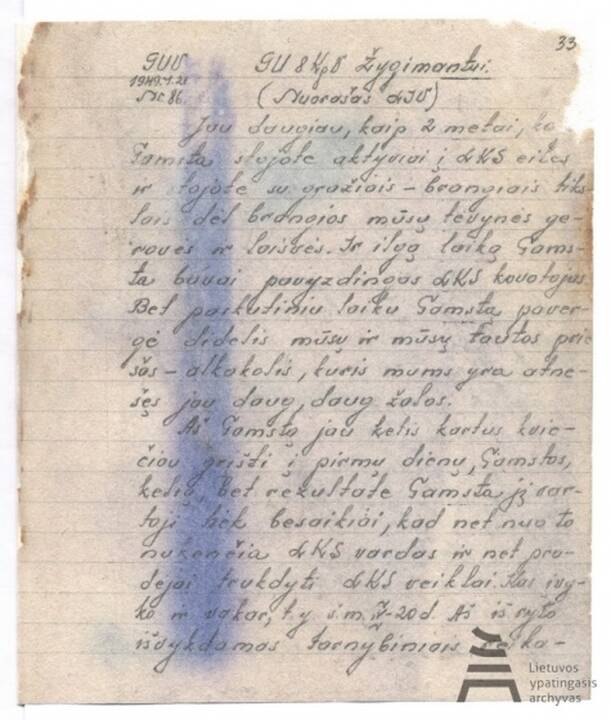 33
GUV GU 8 Kp V Žygimantui.
Nr. 86. (Nuorašas dIV)
Jau daugiau, kaip 2 metai, ko
Tamsta stojote aktyviai į dKS eiles
ir stojote su gražiais – brangiais tiks-
lais dėl brangios mūsų tėvynės ge-
rovės ir laisvės. Ir ilgą laiką Tams-
ta buvai pavyzdingas dKS kovotojas.
Bet paskutiniu laiku Tamstą paver-
gė didelis mūsų ir mūsų tautos prie-
šas – alkokolis, kuris mums yra atne-
šęs jau daug, daug žalos.
Aš Tamstą jau kelis kartus kvie-
čiau grįšti į pirmų dienų, Tamstos,
kelią, bet rezultate Tamsta jį var-
toji tiek besaikiai, kad net nuo to
nukenčia dKS vardas ir net pra-
dejai trukdyti dKS veiklai. Kas įvy-
ko ir vakar, t.y. š.m. IV-20 d. Aš iš ryto
išvykdamas tarnybiniais reika-
Lietuvos
ypatingasis
archyvas